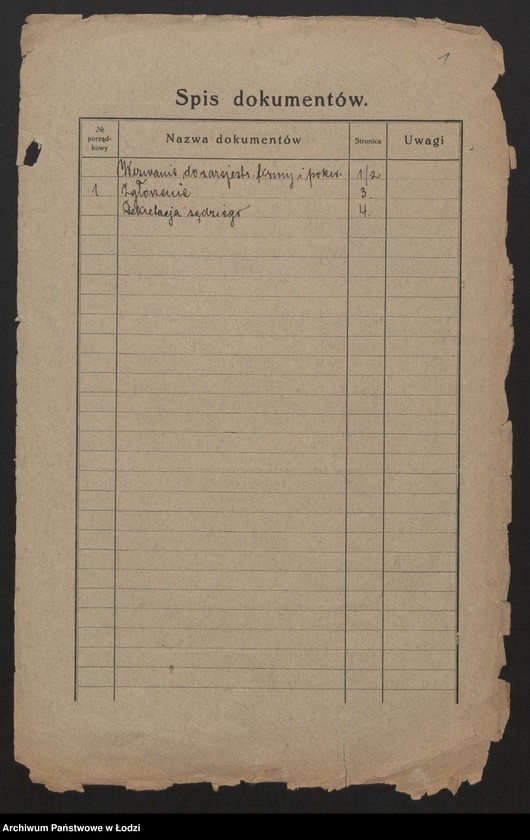 1
Spis dokumentów.
№ porząd-kowy Nazwa dokumentów Stronica Uwagi
Wezwanie do zarejestr. firmy i pokw. 1/2
1 Zgłoszenie 3.
Dekretacja sędziego 4.
Archiwum Państwowe w Łodzi